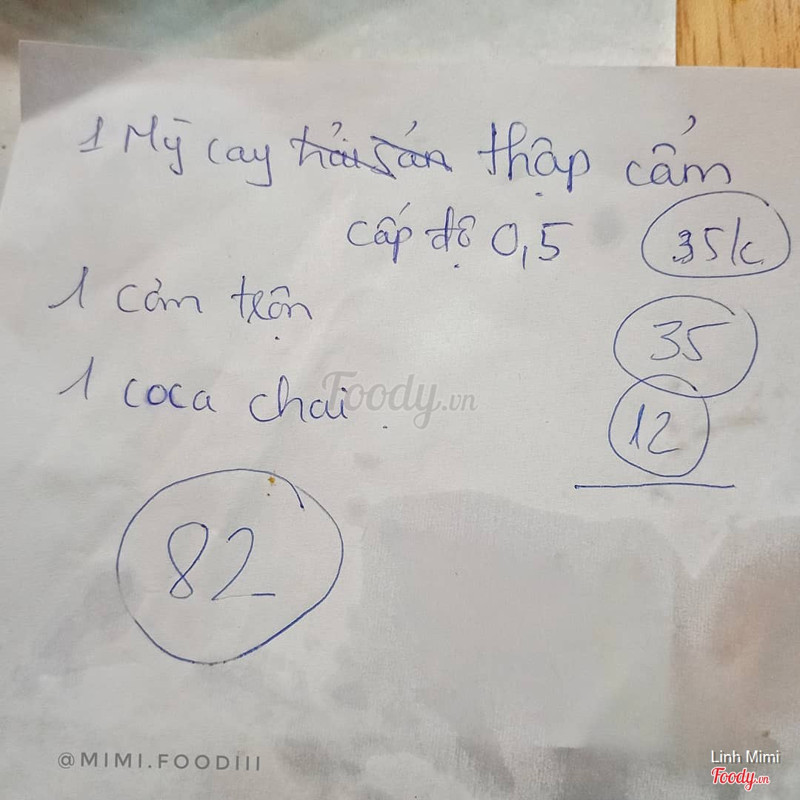 1 Mỳ cay hải sản thập cẩm
cấp độ 0,5 35k
1 cơm trộn 35
1 coca chai. 12
82
Foody.vn
@MIMI.FOODIII
Linh Mimi
Foody.vn